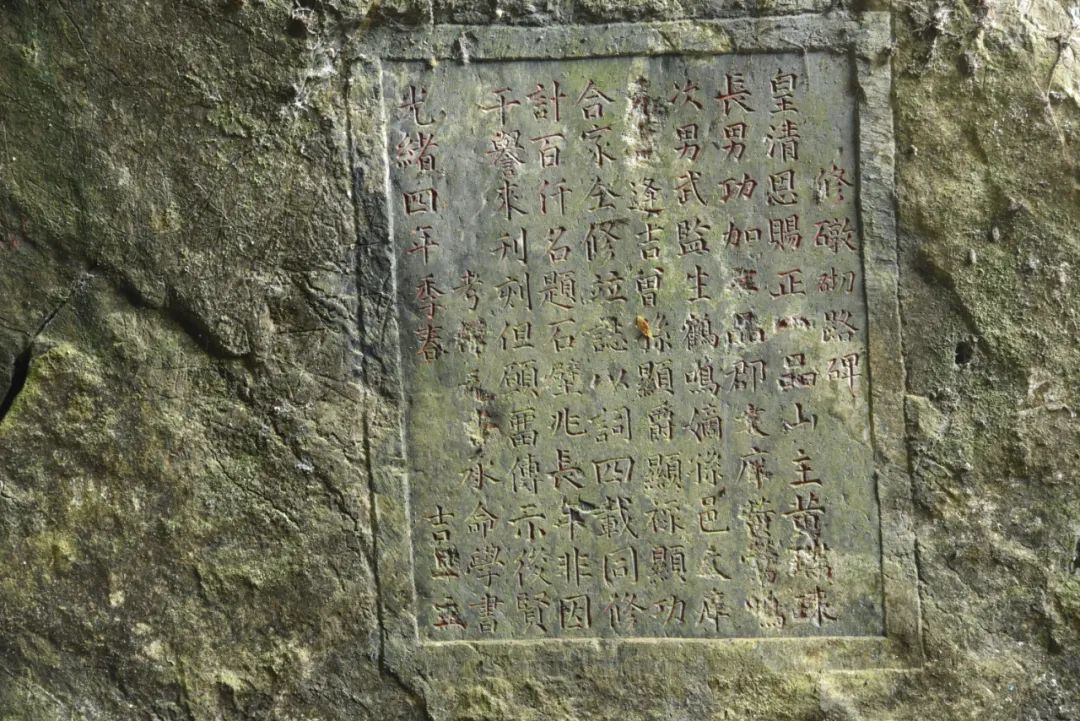 修礅砌路碑
皇清恩賜正八品山主黃珠
長男功加品郡文庠黃鶯鳴
次男武監生鶴鳴嫡孫邑文庠
逢吉曾孫顯爵顯祿顯功
合家仝修竝誌以詞四載同修
計百仟名題石壁兆長年非因
干譽來刊刻但願畱傳示後賢
男承命學書
光緒四年季春吉旦立